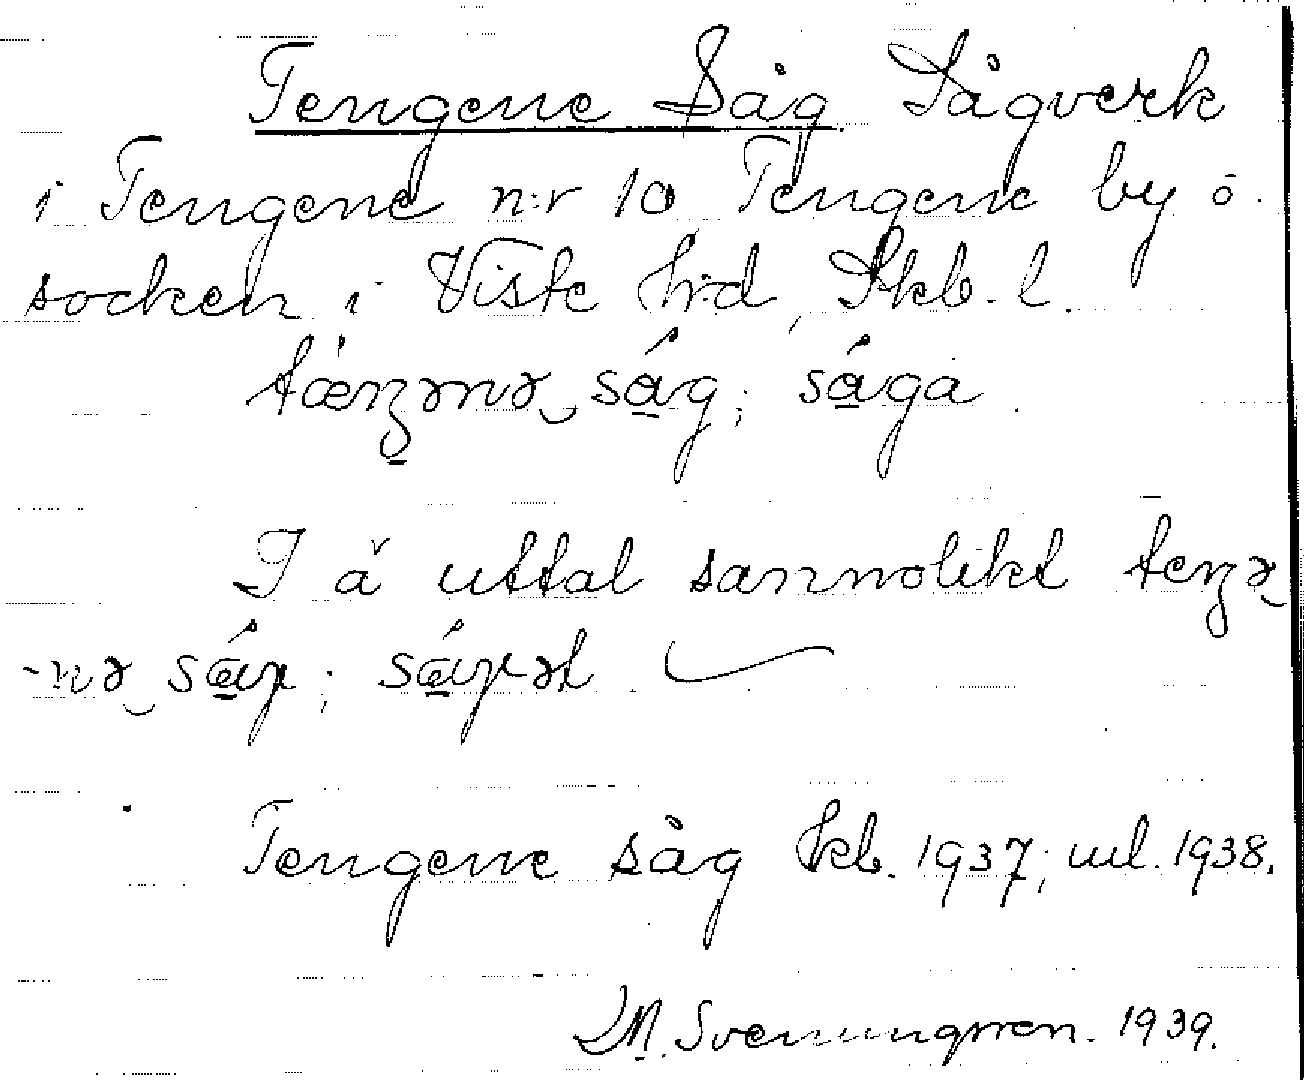 Tengene Såg Sågverk
i Tengene n:r 10 Tengene by o
socken i Viste hrd, Skb. l.
såg; såga
I ä uttal sannolikt
Tengene såg tkb. 1937; uul. 1938.
M. Svenungsson. 1939.